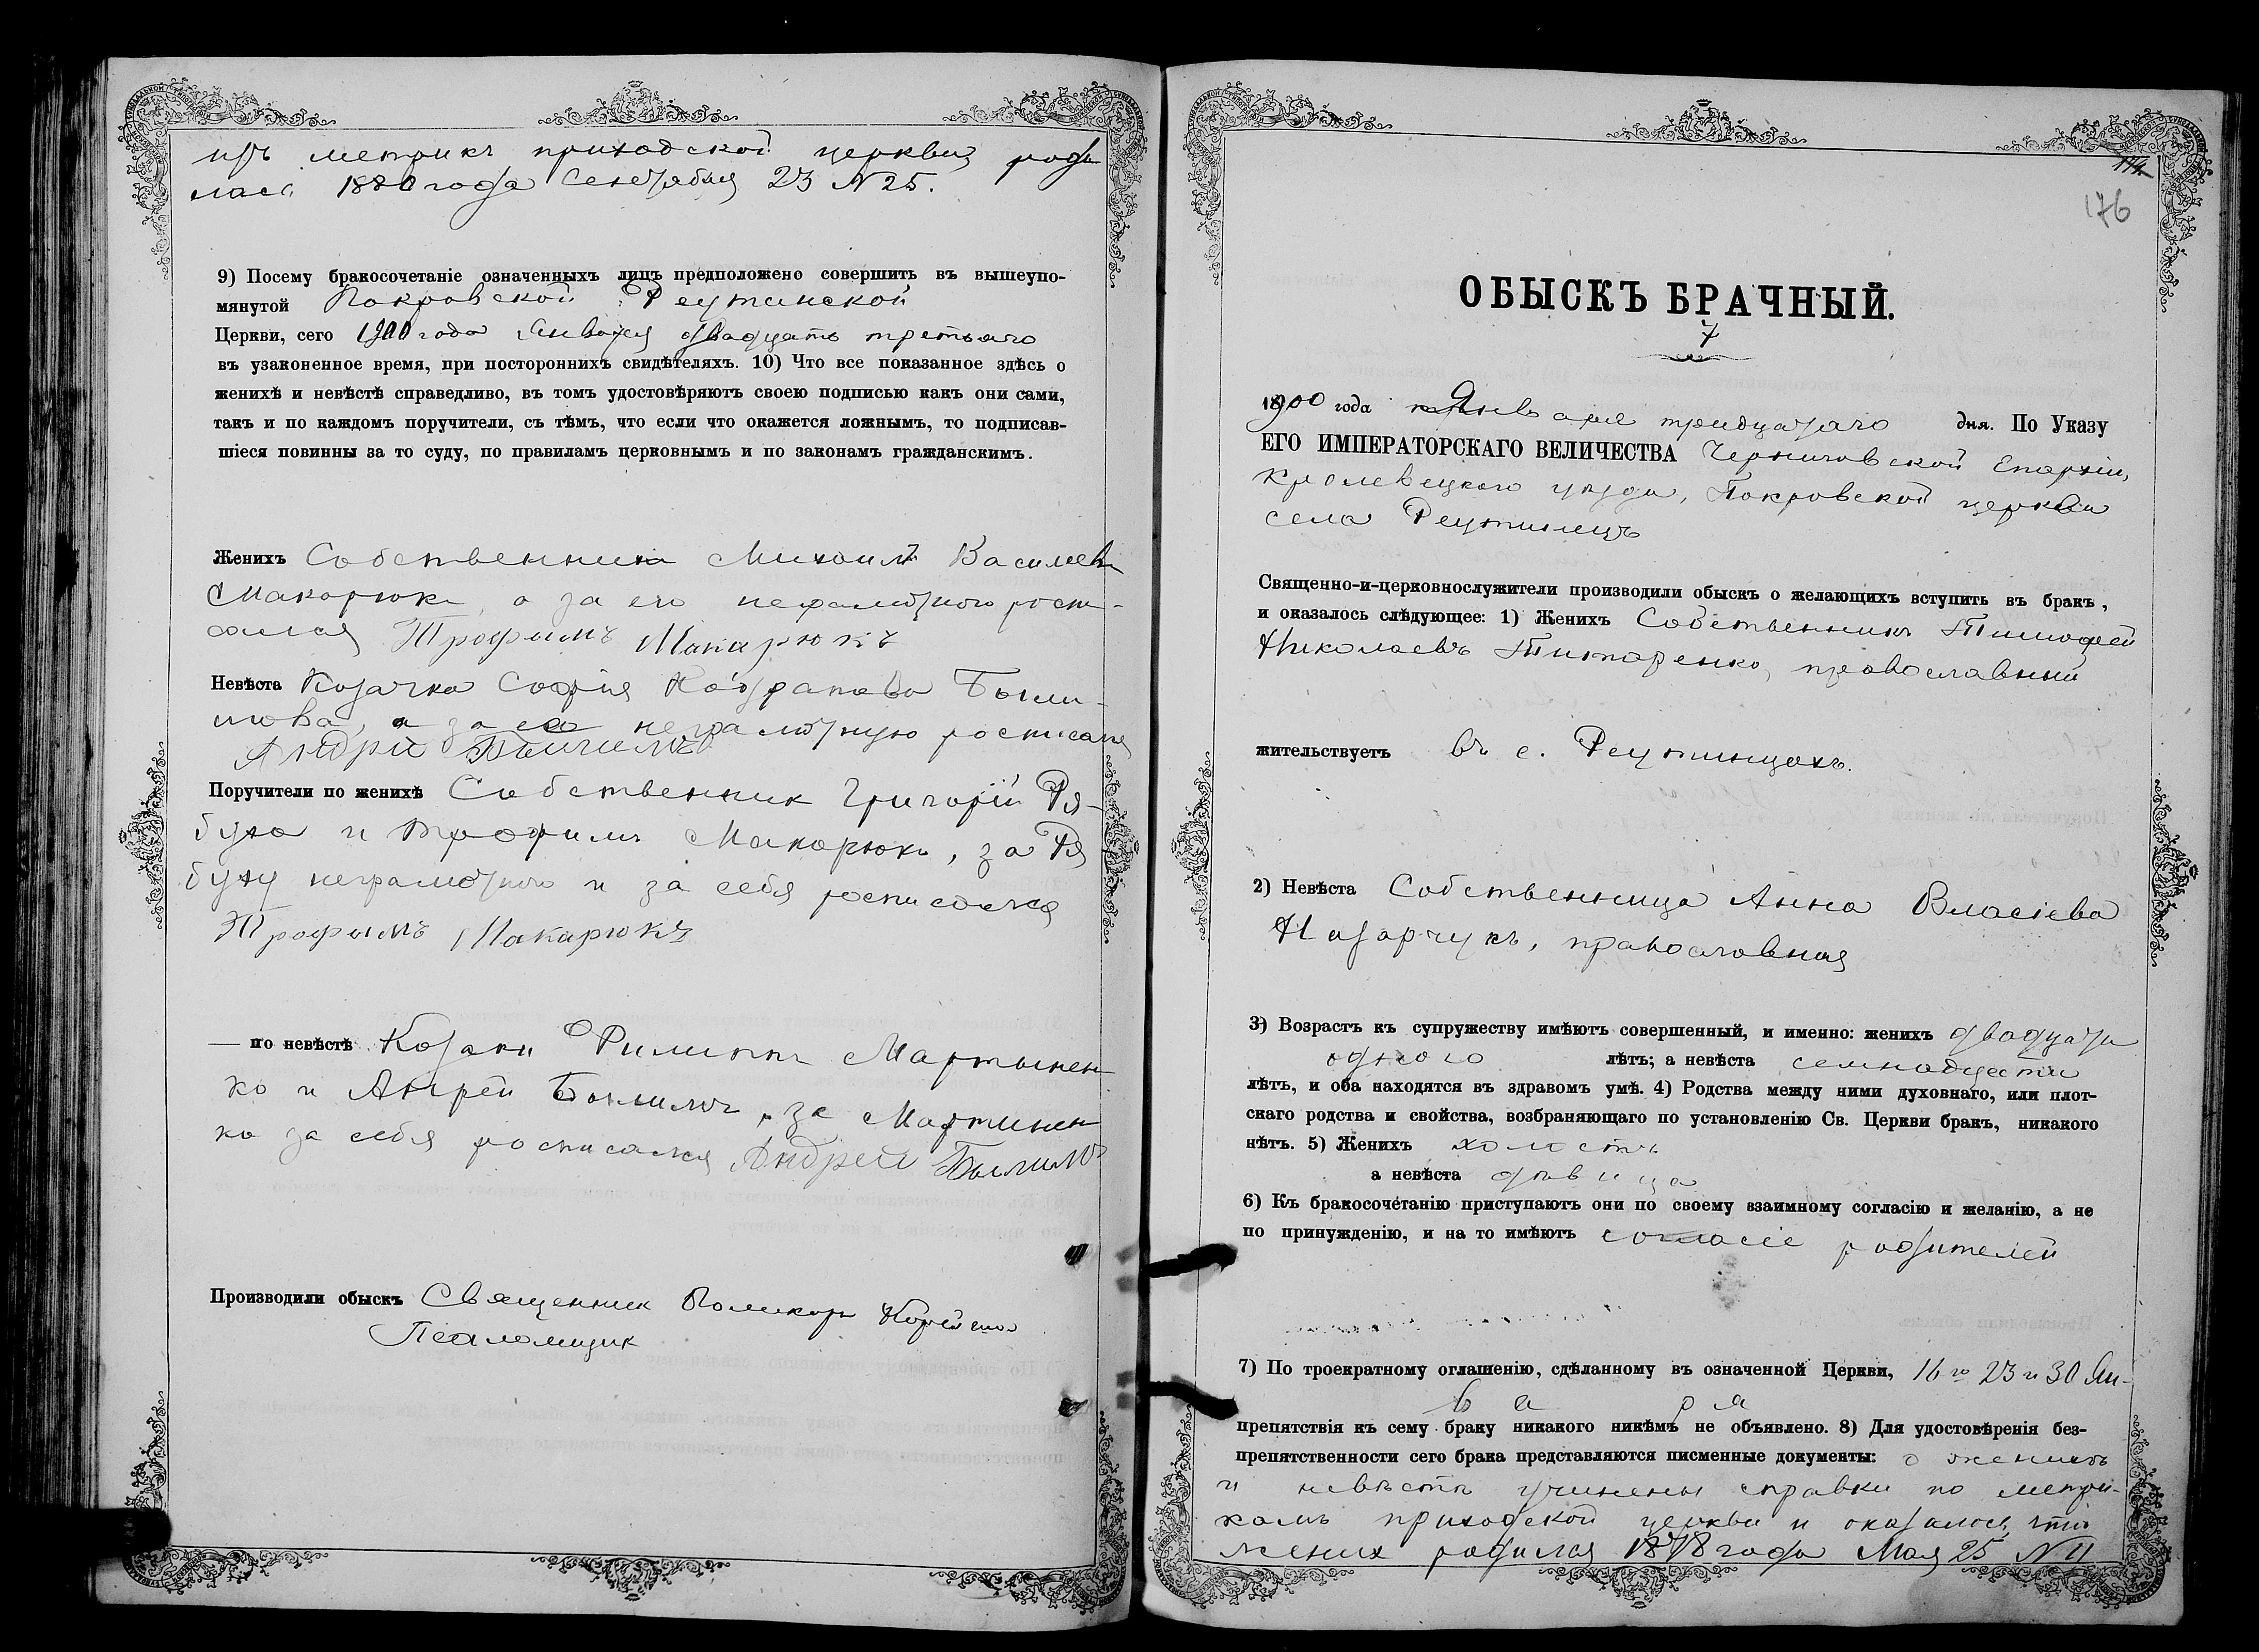 метрикъ приходской церкви роди
лась 1880 года Сентября 23 № 25.
9) Посему бракосочетаніе означенныхъ лицъ предположено совершить въ вышеупо-
мянутой Покровской Реутинской
Церкви, сего 1900 года Января двадцать третьяго
въ узаконенное время, при постороннихъ свидѣтеляхъ. 10) Что все показанное здѣсь о
женихѣ и невѣстѣ справедливо, въ томъ удостовѣряютъ своею подписью какъ они сами,
такъ и по каждомъ поручители, съ тѣмъ, что если что окажется ложнымъ, то подписав-
шіеся повинны за то суду, по правиламъ церковнымъ и по законамъ гражданскимъ.
Женихъ Собственникъ Михаилъ Василевъ
Макарюкъ, а за его неграмотного роспи-
сался Трофимъ Макарюкъ
Невѣста Козачка Софія Былы-
мова, а за ее неграмотную росписался
Андрей Былимъ
Поручители по женихѣ Собственник Григорій Ря-
буха и Трофимъ Макарюкъ, за Ря
буху неграмотного и за себя росписался
Трофымъ Макарюкъ
— по невѣстѣ Козаки Филиппъ Мартынен
ко и Андрей Былимъ, за Мартинен
ко за себя росписался Андрей Былимъ
Производили обыскъ Священник Поликарп
Псаломщик
174
176
ОБЫСКЪ БРАЧНЫЙ.
7
1900 года Января тридцатаго дня. По Указу
ЕГО ИМПЕРАТОРСКАГО ВЕЛИЧЕСТВА Черниговской Епархіи,
Кролевецкого уѣзда, Покровской церкви
села Реутинецъ
Священно-и-церковнослужители производили обыскъ о желающихъ вступить въ бракъ,
и оказалось слѣдующее: 1) Женихъ Собственникъ Тимофей
Николаевъ Титаренко, православный
жительствуетъ въ с. Реутинцахъ.
2) Невѣста Собственница Анна Власіева
Назарчукъ, православная
3) Возрастъ къ супружеству имѣютъ совершенный, и именно: женихъ двадцати
одного лѣтъ; а невѣста семнадцати
лѣтъ, и оба находятся въ здравомъ умѣ. 4) Родства между ними духовнаго, или плот-
скаго родства и свойства, возбраняющаго по установленію Св. Церкви бракъ, никакого
нѣтъ. 5) Женихъ холостъ
а невѣста дѣвица
6) Къ бракосочетанію приступаютъ они по своему взаимному согласію и желанію, а не
по принужденію, и на то имѣютъ согласіе родителей
7) По троекратному оглашенію, сдѣланному въ означенной Церкви, 16 го 23 и 30 Ян-
варя
препятствія къ сему браку никакого никѣмъ не объявлено. 8) Для удостовѣренія без-
препятственности сего брака представляются писменные документы: о женихѣ
и невѣстѣ учинены справки по метри-
камъ приходской церкви и оказалось, что
жених родился 1878 года Мая 25 № 11